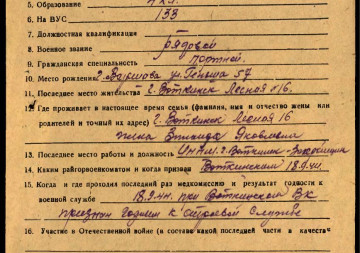 5. Образование 4 кл.
6. На ВУС 133
7. Должностная квалификация
8. Военное звание рядовой
9. Гражданская специальность портной
10. Место рождения г. Варшава ул. Геньша 57
11. Последнее место жительства г. Воткинск Лесная № 16.
12. Где проживает в настоящее время семья (фамилия, имя и отчество жены или
родителей и точный их адрес) г. Воткинск Лесная 16
жена Зинаида Яковлевна
13. Последнее место работы и должность г. Воткинск
14. Каким райгорвоенкоматом и когда призван Воткинским 18.9.44.
15. Когда и где проходил последний раз медкомиссию и результат годности к
военной службе 18.9.44. при Воткинском ВК
признан годным к строевой службе
16. Участие в Отечественной войне (и составе какой последней части в качестве